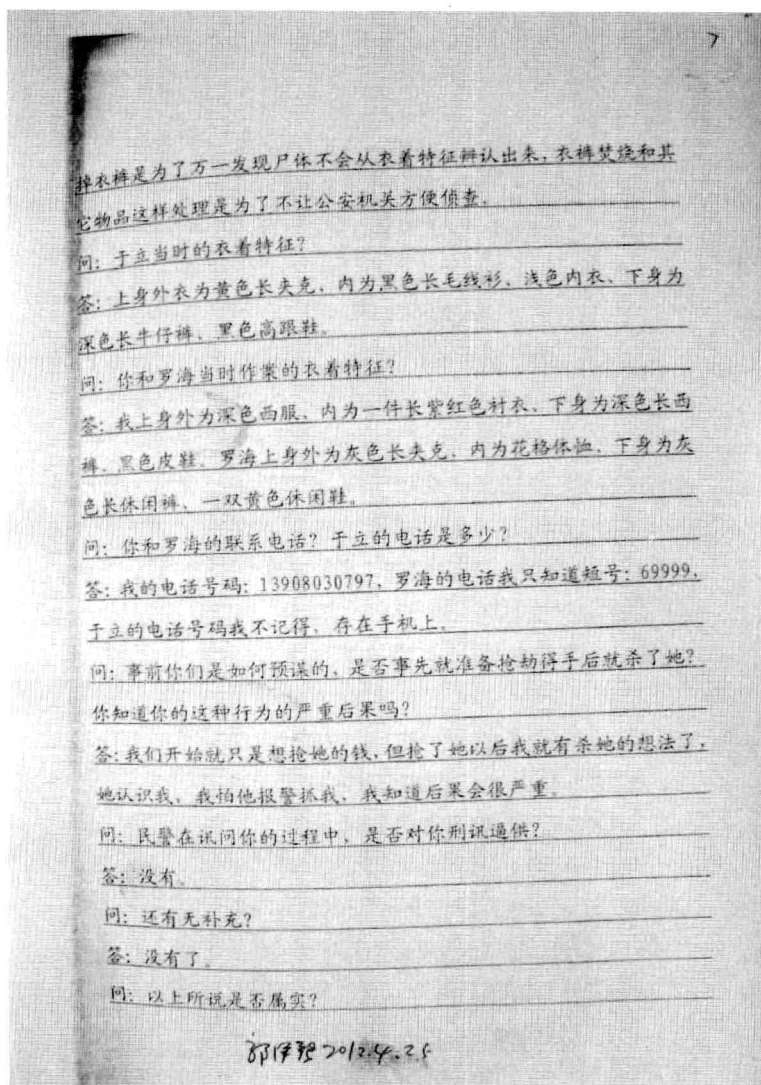 7
掉衣裤是为了万一发现尸体不会从衣着特征辨认出来，衣裤焚烧和其
它物品这样处理是为了不让公安机关方便侦查。
问：于立当时的衣着特征？
答：上身外衣为黄色长夹克、内为黑色长毛线衫、浅色内衣、下身为
深色长牛仔裤、黑色高跟鞋。
问：你和罗海当时作案的衣着特征？
答：我上身外为深色西服、内为一件长紫红色衬衣、下身为深色长西
裤、黑色皮鞋。罗海上身外为灰色长夹克、内为花格体恤、下身为灰
色长休闲裤、一双黄色休闲鞋。
问：你和罗海的联系电话？于立的电话是多少？
答：我的电话号码：13908030797，罗海的电话我只知道短号：69999，
于立的电话号码我不记得，存在手机上。
问：事前你们是如何预谋的，是否事先就准备抢劫得手后就杀了她？
你知道你的这种行为的严重后果吗？
答：我们开始就只是想抢她的钱，但抢了她以后我就有杀她的想法了，
她认识我，我怕他报警抓我，我知道后果会很严重。
问：民警在讯问你的过程中，是否对你刑讯逼供？
答：没有。
问：还有无补充？
答：没有了。
问：以上所说是否属实？
2012.4.25